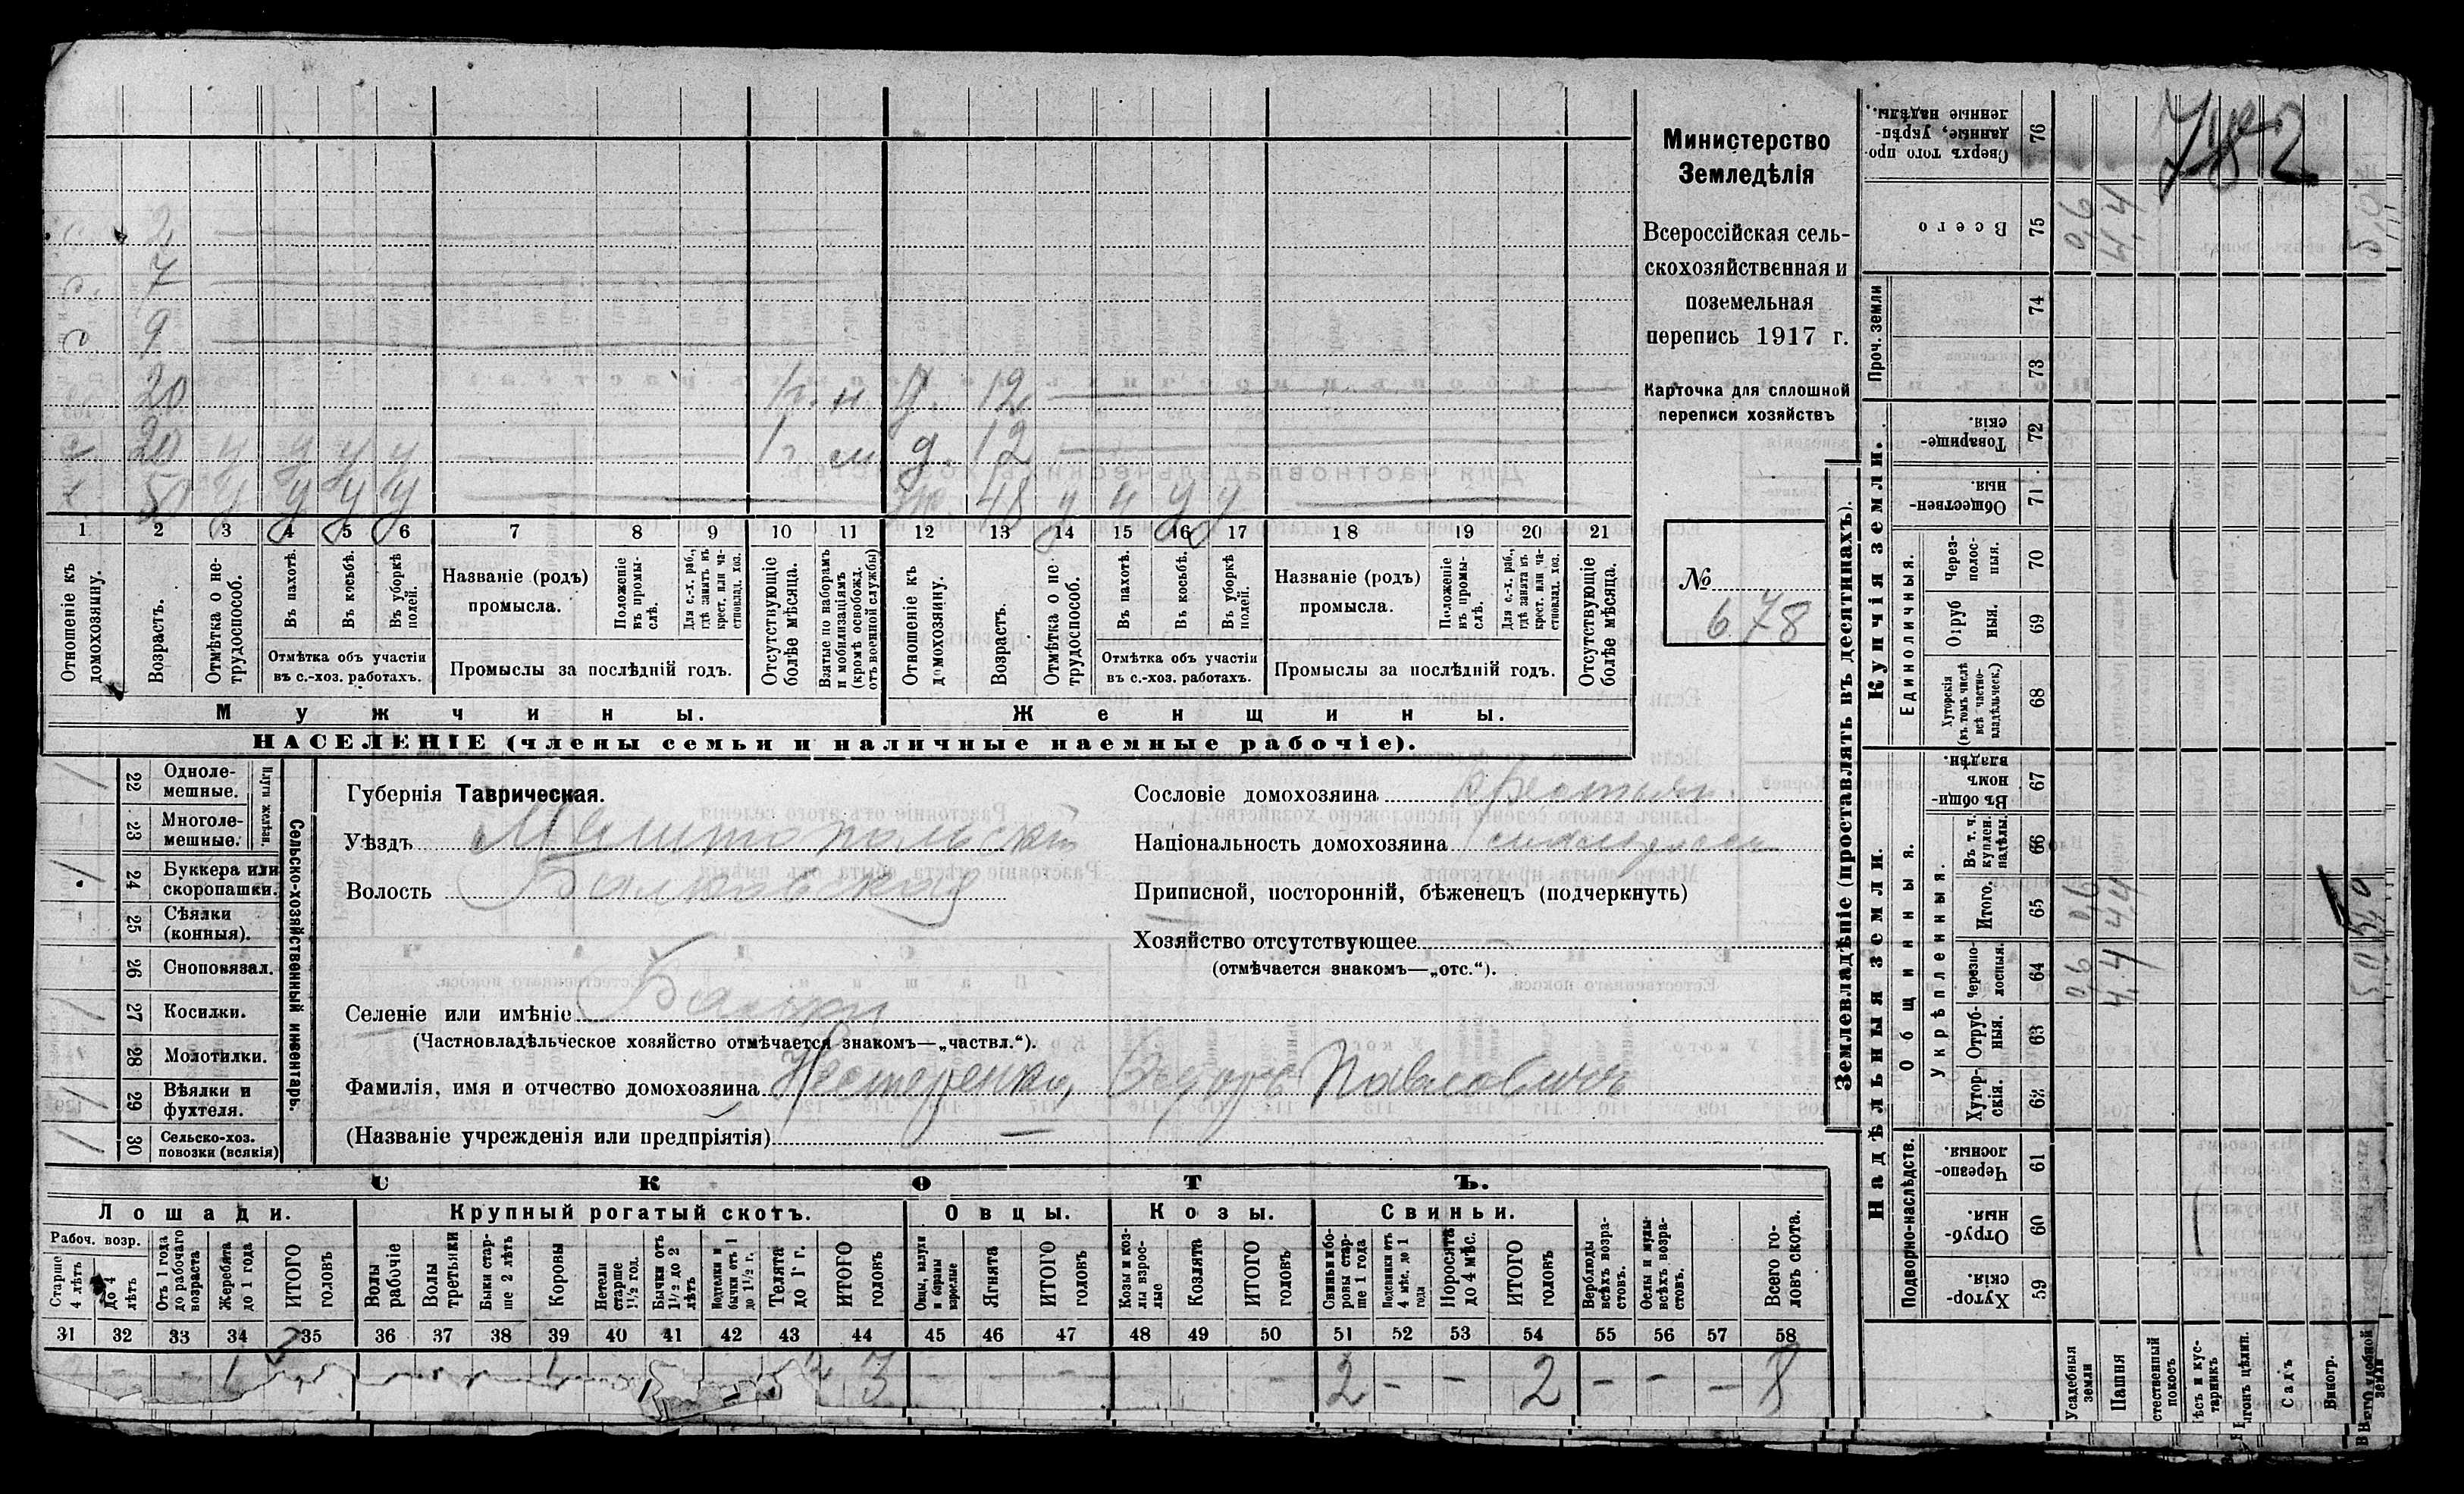 782
Министерство
Земледѣлія
Всероссійская сель-
скохозяйственная и
поземельная
перепись 1917 г.
Карточка для сплошной
переписи хозяйствъ
№
678
2
7
9
20 1 г. н. д. 12
20 1 г. м. д. 12
50 48
1 2 3 4 5 6 7 8 9 10 11 12 13 14 15 16 17 18 19 20 21
Отношеніе къ домохозяину.
Возрастъ.
Отмѣтка о не-трудоспособ.
Въ пахотѣ.
Въ косьбѣ.
Въ уборкѣ полей.
Отмѣтка объ участіи
въ с.-хоз. работахъ.
Названіе (родъ)
промысла.
Положеніе въ промы-слѣ.
Для с.-х. раб., гдѣ занятъ въ крест. или ча-стновлад. хоз.
Промыслы за послѣдній годъ.
Отсутствующіе болѣе мѣсяца.
Взятые по наборамъ и мобилизаціямъ (кромѣ освобожд. отъ военной службы)
Отношеніе къ домохозяину.
Возрастъ.
Отмѣтка о не трудоспособ.
Въ пахотѣ.
Въ косьбѣ.
Въ уборкѣ полей.
Отмѣтка объ участіи
въ с.-хоз. работахъ.
Названіе (родъ)
промысла.
Положеніе въ промы-слѣ.
Для с.-х. раб., гдѣ занята въ крест. или ча-стновлад. хоз.
Промыслы за послѣдній годъ.
Отсутствующіе болѣе мѣсяца.
Мужчины.
Женщины.
НАСЕЛЕНІЕ (члены семьи и наличные наемные рабочіе).
22 Одноле-мешные.
23 Многоле-мешные.
Плуги желѣзн.
24 Буккера или скоропашки.
25 Сѣялки (конныя).
26 Сноповязал.
27 Косилки.
28 Молотилки.
29 Вѣялки и фухтеля.
30 Сельско-хоз. повозки (всякія)
Сельско-хозяйственный инвентарь.
Губернія Таврическая.
Уѣздъ Мелитопольскій
Волость Балковская
Селеніе или имѣніе Балки
(Частновладѣльческое хозяйство отмѣчается знакомъ—„частвл.“).
Фамилія, имя и отчество домохозяина Нестеренко, Федоръ Павловичъ
(Названіе учрежденія или предпріятія) —
Сословіе домохозяина крестьян.
Національность домохозяина
Приписной, посторонній, бѣженецъ (подчеркнуть)
Хозяйство отсутствующее
(отмѣчается знакомъ—„отс.“).
СКОТЪ.
Лошади.
Крупный рогатый скотъ.
Овцы.
Козы.
Свиньи.
Рабоч. возр.
Старше 4 лѣтъ
До 4 лѣтъ
Отъ 1 года до рабочаго возраста
Жеребята до 1 года
ИТОГО головъ
Волы рабочіе
Волы третьяки
Быки стар-ше 2 лѣтъ
Коровы
Нетели старше 1½ год.
Бычки отъ 1½ до 2 лѣтъ
Подтелки и бычки отъ 1 до 1½ г.
Телята до 1 г.
ИТОГО головъ
Овцы, валухи и бараны взрослые
Ягнята
ИТОГО головъ
Козы и коз-лы взрос-лые
Козлята
ИТОГО головъ
Свиньи и бо-ровы стар-ше 1 года
Подсвинки отъ 4 мѣс. до 1 года
Поросята до 4 мѣс.
ИТОГО головъ
Верблюды всѣхъ возра-стовъ.
Ослы и мулы всѣхъ возра-стовъ.
Всего го-ловъ скота.
31 32 33 34 35 36 37 38 39 40 41 42 43 44 45 46 47 48 49 50 51 52 53 54 55 56 57 58
- - 1 3 - - - 2 - - 2 - - - 8
Землевладѣніе (проставлять въ десятинахъ).
Надѣльныя земли.
Купчія земли.
Проч. земли
Подворно-наслѣдств.
Общинныя.
Укрѣпленныя.
Единоличныя.
Сверхъ того про-данные, укрѣп-ленные надѣлы. 76
Всего 75
74
73
Товарище-скія 72
Обществен-ныя 71
Через-полос-ныя. 70
Отруб ныя. 69
Хуторскія (въ томъ числѣ всѣ частно-владѣльческ.) 68
Въ общин-номъ владѣн. 67
Въ т. ч. куплен. надѣлы. 66
Итого. 65
Черезпо-лосныя. 64
Отруб-ныя. 63
Хутор-скія. 62
Черезпо-лосныя. 61
Отруб-ныя. 60
Хутор-скія. 59
0,6 4,4
0,6 4,4
0,6 4,4
Усадебныя земли
Пашня
стественный покосъ
ѣсъ и кус-тарникъ
ыгонъ цѣлин.
Садъ
Виногр.